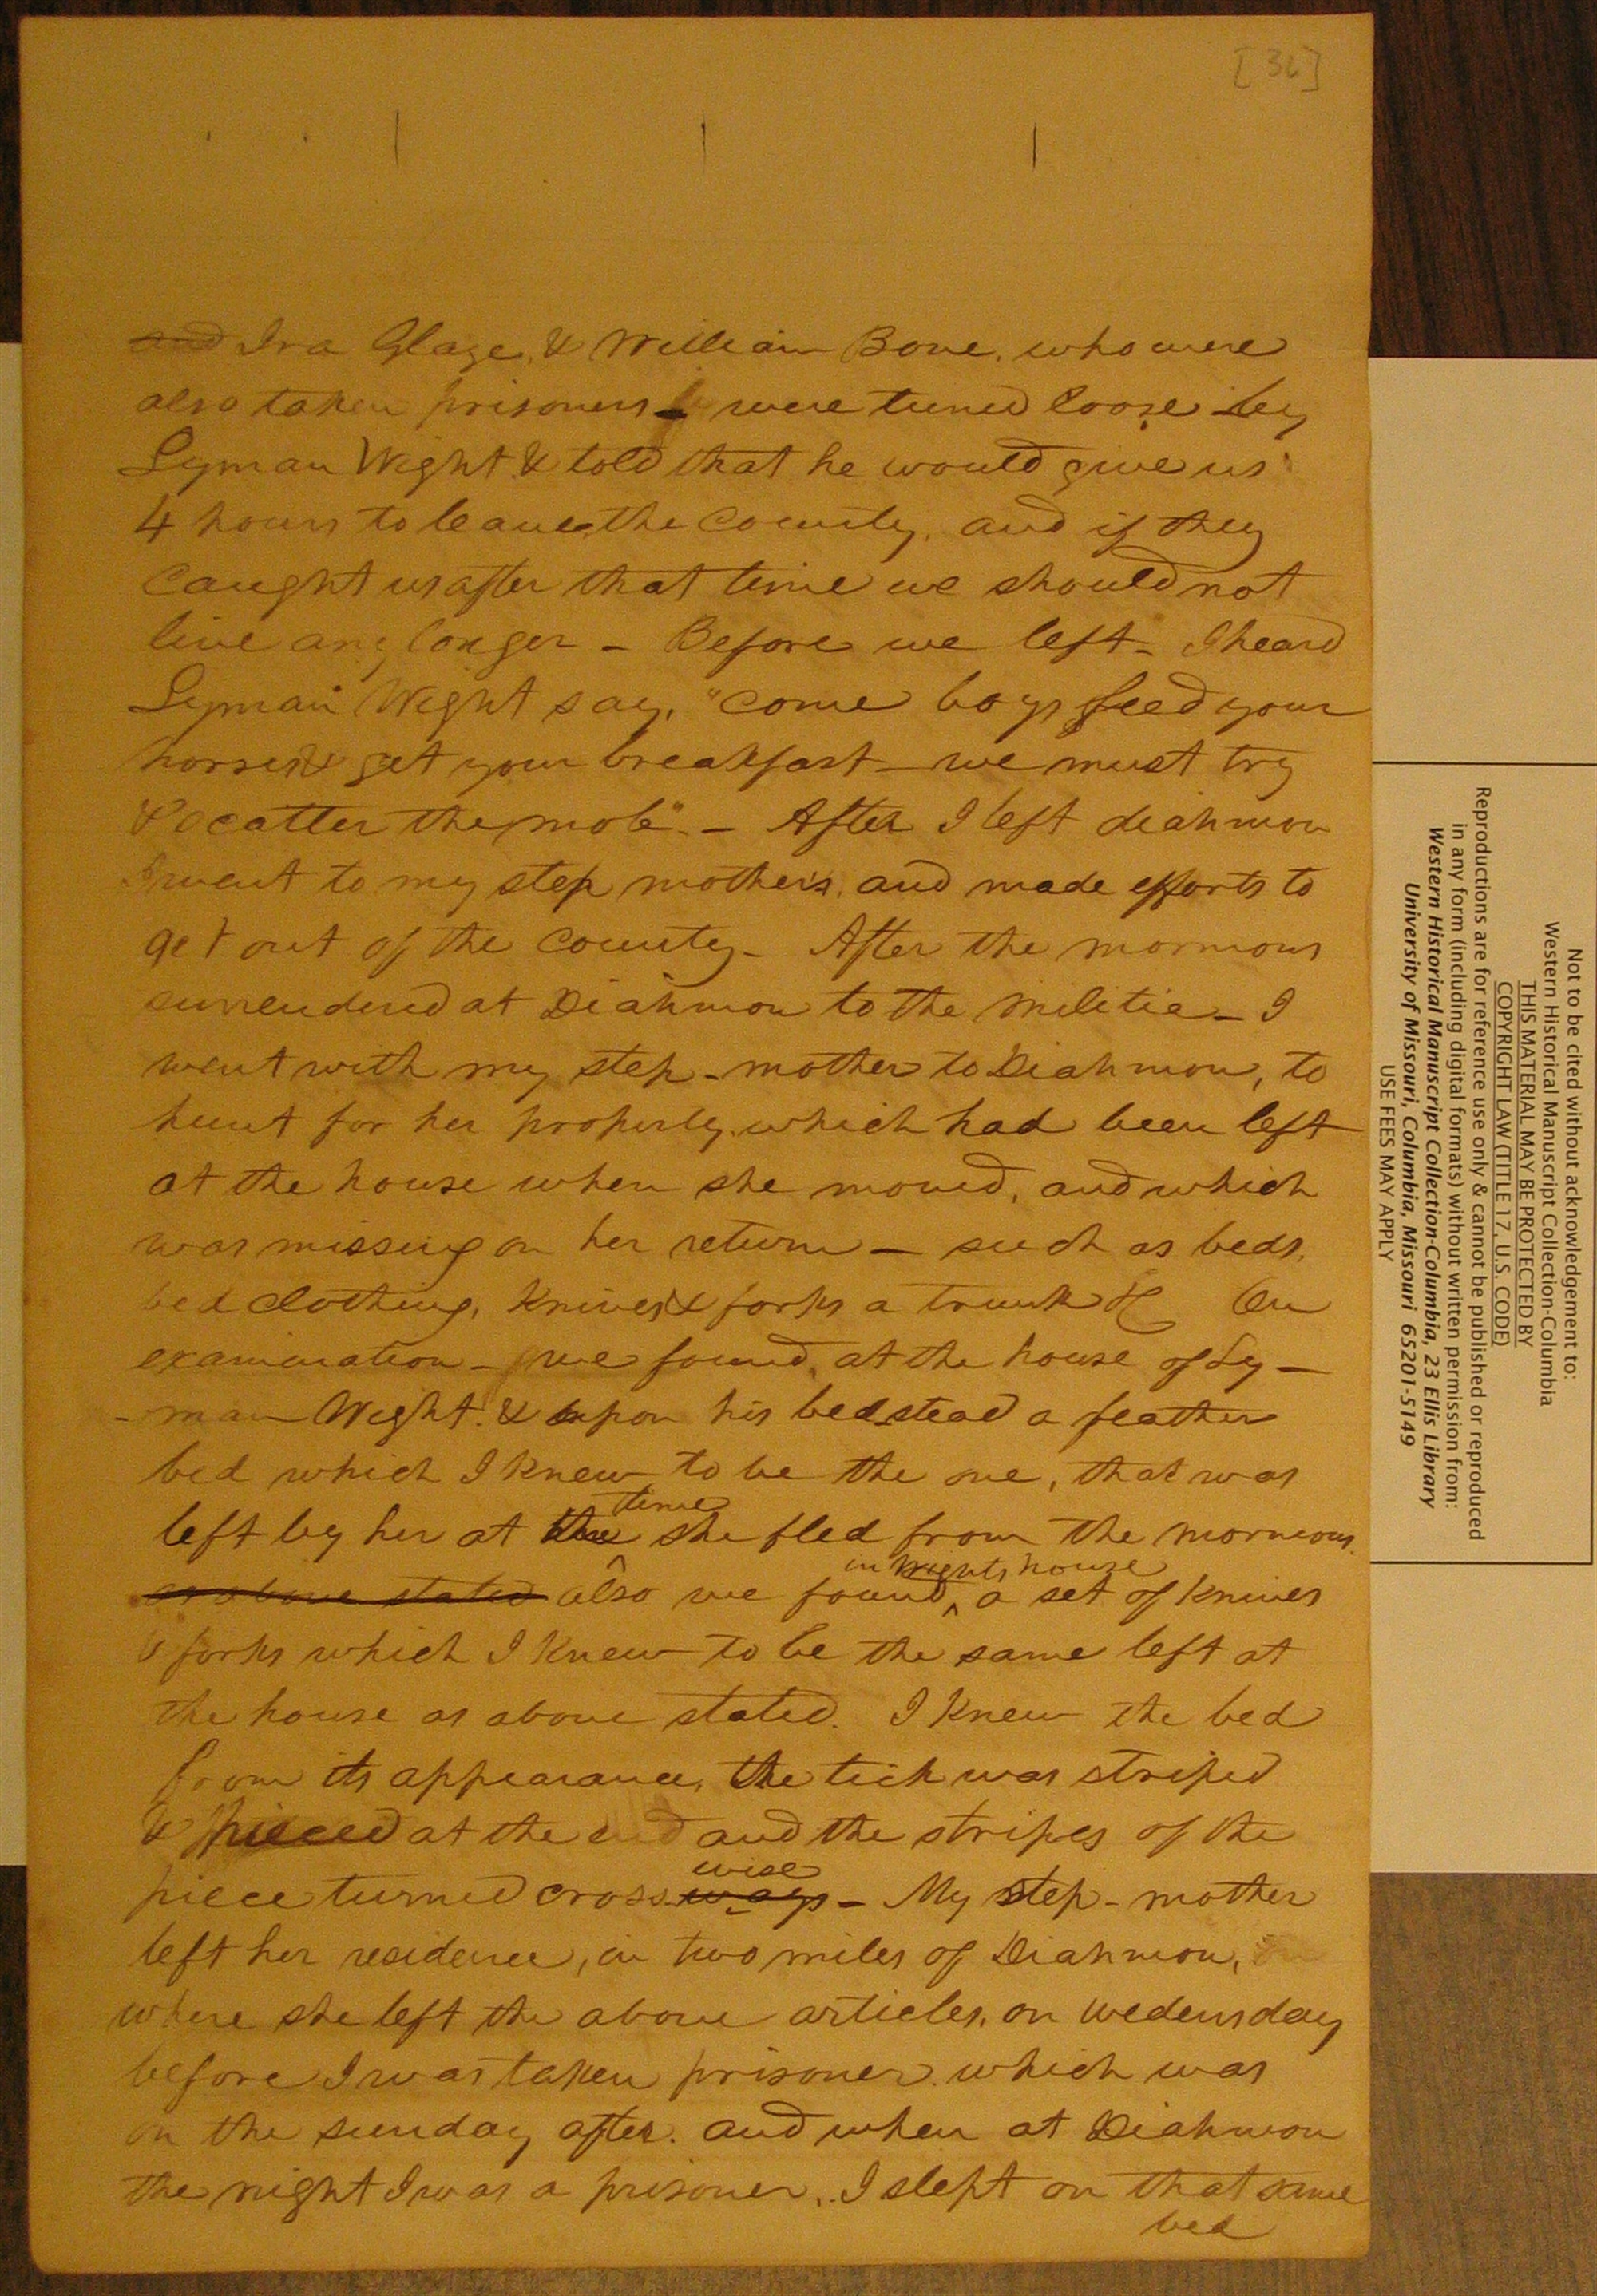 [36]
and Ira Glaze, & William Bone, who were
also taken prisoners – were turned loose by
Lyman Wight & told that he would give us
4 hours to leave the County, and if they
Caught us after that time we should not
live any longer – Before we left – I heard
Lyman Wight say, "come boys feed your
horses & get your breakfast – we must try
& scatter the mob" – After I left diahmon
I went to my step mother's, and made efforts to
get out of the County – After the mormons
surrendered at Diahmon to the militia – I
went with my step-mother to Diahmon, to
hunt for her property, which had been left
at the house when she moved, and which
was missing on her return – such as beds,
bed clothing, Knives & forks a trunk &c On
examination – we found, at the house of Ly–
–man Wight, & upon his bedstead a feather
bed which I knew to be the one, that was
left by her at the time she fled from the mormons.
as above stated also we found, in Wights house a set of knives
& forks which I knew to be the same left at
the house as above stated. I knew the bed
from its appearance, the tick was striped
& pieced at the end and the stripes of the
piece turned cross ways wise – My step-mother
left her residence, in two miles of Diahmon,
where she left the above articles, on wedensday
before I was taken prisoner, which was
on the sunday after. and when at Diahmon
the night I was a prisoner, I slept on that same
bed
Not to be cited without acknowledgement to:
Western Historical Manuscript Collection-Columbia
THIS MATERIAL MAY BE PROTECTED BY
COPYRIGHT LAW (TITLE 17, U.S. CODE)
Reproductions are for reference use only & cannot be published or reproduced
in any form (including digital formats) without written permission from:
Western Historical Manuscript Collection-Columbia, 23 Ellis Library
University of Missouri, Columbia, Missouri 65201-5149
USE FEES MAY APPLY